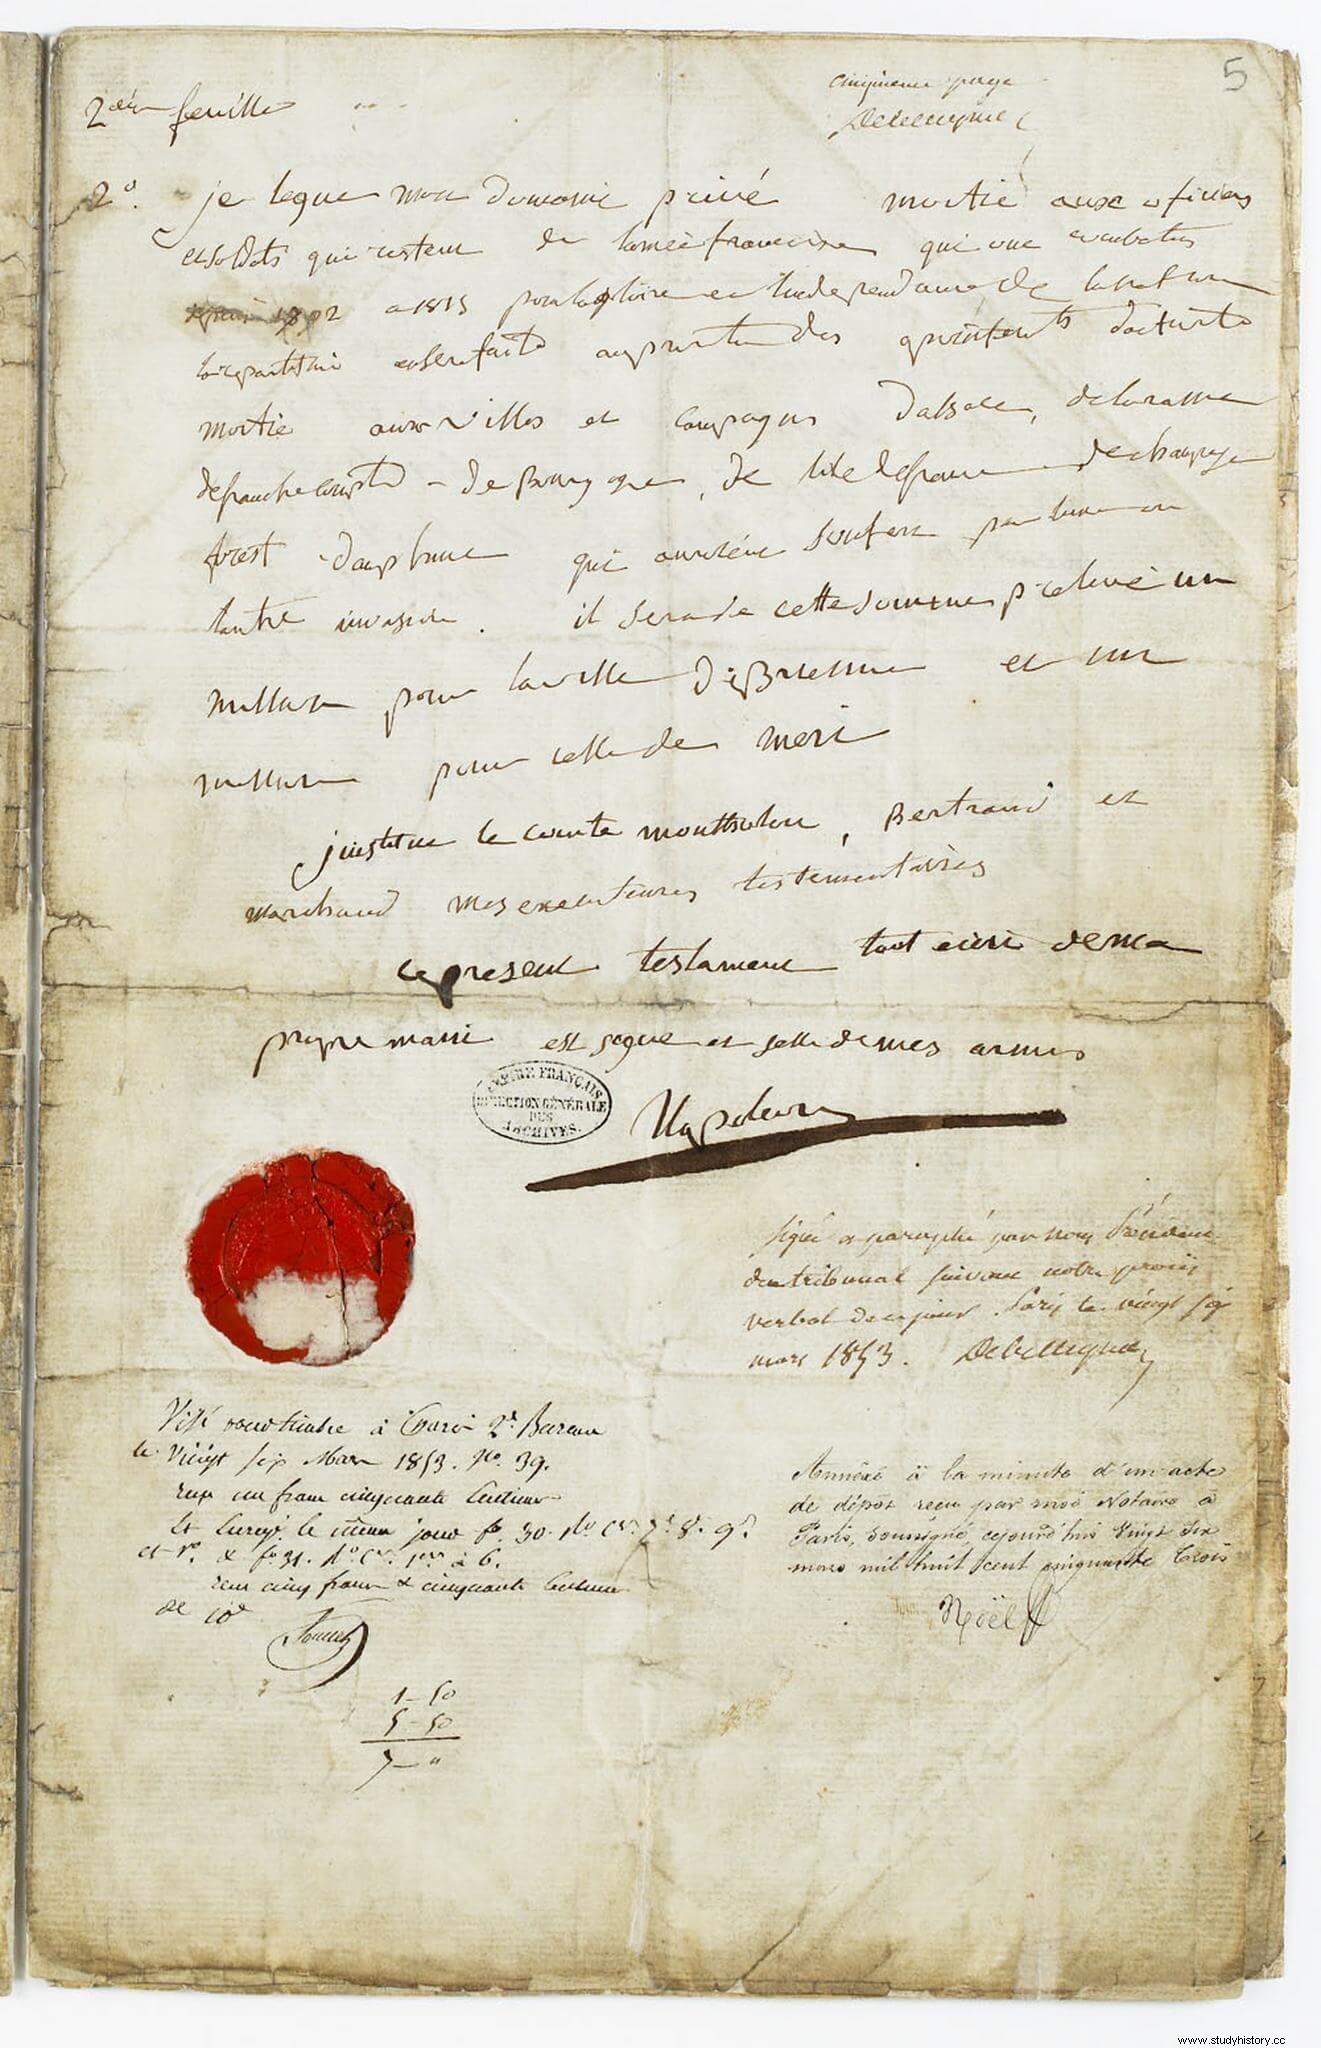 2ème feuille
cinquieme page
5
Debelleyme
2o. je legue mon domaine privé moitié aux officiers
et soldats qui restent de l'armée francaise qui ont combatus
depuis 1792 a 1815 pour la gloire et l'independance de la nation
la repartition en sera faite au prorata des appointements d'activité
moitié aux villes et campagnes d'alsace, de loraine
de franche compté - de Bourgogne, de l'ile de france - de champagne
forest - dauphine qui auroient soufert par l'une ou
l'autre invasion. il sera de cette somme prelevé un
million pour la ville de Brienne et un
million pour celle de meri
j'institue le comte montholon, Bertrand et
marchand mes executeures testementaires
ce present testament tout écrit de ma
propre main est signé et sellé de mes armes
EMPIRE FRANÇAIS
DIRECTION GÉNÉRALE
DES
ARCHIVES.
Napoleon
Signé et paraphé par nous Président
du tribunal suivant notre procès
verbal de ce jour. Paris le vingt six
mars 1853. Debelleyme
Visé pour timbre à Paris 2e. Bureau
le vingt six Mars 1853. No. 39.
reçu un franc cinquante centimes
Et enregé. le même jour fo. 30. Ro. Cs. 7. 8. 9.
et Vo. & fo. 31. Ro. Cs. 1er. à 6.
reçu cinq francs & cinquante centimes
de 10e
Annéxé à la minute d'un acte
de dépôt reçu par moi Notaire à
Paris, soussigné, cejourd'hui vingt six
mars mil huit cent cinquante trois
Noël
1 - 50
5 - 50
7 - "
www.studyhistory.cc